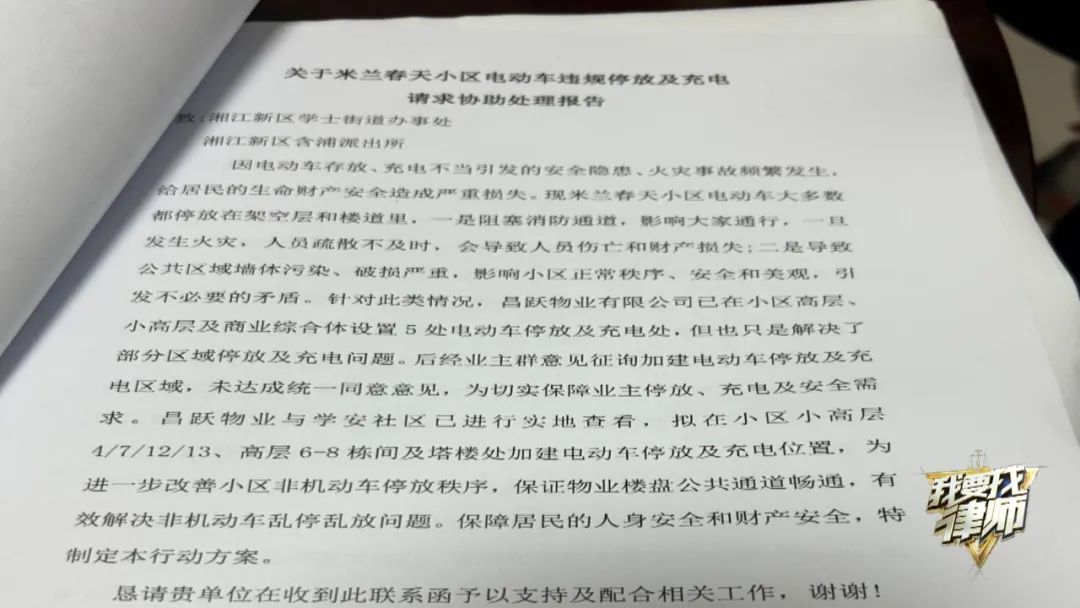 关于米兰春天小区电动车违规停放及充电
请求协助处理报告
致:湘江新区学士街道办事处
湘江新区含浦派出所
因电动车存放、充电不当引发的安全隐患、火灾事故频繁发生,
给居民的生命财产安全造成严重损失。现米兰春天小区电动车大多数
都停放在架空层和楼道里,一是阻塞消防通道,影响大家通行,一旦
发生火灾,人员疏散不及时,会导致人员伤亡和财产损失;二是导致
公共区域墙体污染、破损严重,影响小区正常秩序、安全和美观,引
发不必要的矛盾。针对此类情况,昌跃物业有限公司已在小区高层、
小高层及商业综合体设置5处电动车停放及充电处,但也只是解决了
部分区域停放及充电问题。后经业主群意见征询加建电动车停放及充
电区域,未达成统一同意意见,为切实保障业主停放、充电及安全需
求。昌跃物业与学安社区已进行实地查看,拟在小区小高层
4/7/12/13、高层6-8栋间及塔楼处加建电动车停放及充电位置,为
进一步改善小区非机动车停放秩序,保证物业楼盘公共通道畅通,有
效解决非机动车乱停乱放问题。保障居民的人身安全和财产安全,特
制定本行动方案。
恳请贵单位在收到此联系函予以支持及配合相关工作,谢谢!
我要找
律师